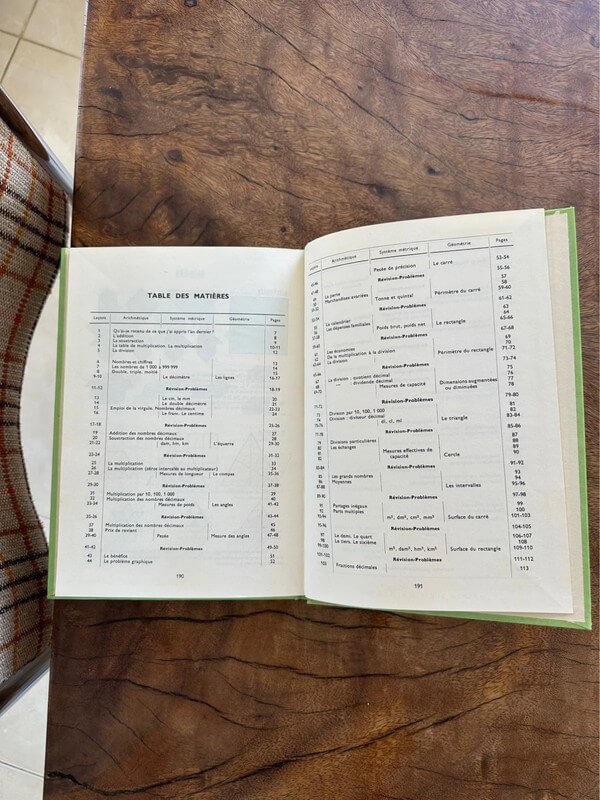 TABLE DES MATIÈRES
Leçons Arithmétique Système métrique Géométrie Pages
1 Qu'a-je retenu de ce que j'ai appris l'an dernier ? 7
2 L'addition 8
3 La soustraction 9
4 La table de multiplication. La multiplication 10-11
5 La division 12
Nombres et chiffres 13
Les nombres de 1 000 à 999 999 14
Double, triple, moitié 15
9-10 Le décimètre Les lignes 16-17
11-12 Révision-Problèmes 18-19
13 Le cm, le mm
14 Le double décimètre
15 Emploi de la virgule. Nombres décimaux
16 Le franc. Le centime
17-18 Révision-Problèmes 25-26
19 Addition des nombres décimaux 27
20 Soustraction des nombres décimaux 28
21-22 dam, hm, km L'équerre 29-30
23-24 Révision-Problèmes 31-32
25 La multiplication 33
26 La multiplication (zéros intercalés au multiplicateur) 34
Mesures de longueur Le compas 35-36
29-30 Révision-Problèmes
31 Multiplication par 10, 100, 1 000 39
32 Multiplication des nombres décimaux 40
Mesures de poids Les angles 41-42
35-36 Révision-Problèmes 43-44
37 Multiplication des nombres décimaux 45
38 Prix de revient 46
39-40 Pesée Mesure des angles 47-48
41-42 Révision-Problèmes 49-50
43 Le bénéfice 51
44 Le problème graphique 52
190
Leçons Arithmétique Système métrique Géométrie Pages
Pesée de précision Le carré 53-54
Révision-Problèmes 55-56
La panne 57
Marchandises avariées 58
Tonne et quintal Périmètre du carré 59-60
Révision-Problèmes 61-62
Le calendrier 63
Les dépenses familiales 64
Poids brut, poids net Le rectangle 65-66
Révision-Problèmes 67-68
Les économies 69
De la multiplication à la division 70
Périmètre du rectangle 71-72
Révision-Problèmes 73-74
La division : quotient décimal 75
— dividende décimal 76
Mesures de capacité Dimensions augmentées ou diminuées 77 78
Révision-Problèmes 79-80
Division par 10, 100, 1 000 81
Division - diviseur décimal 82
dl, cl, ml Le triangle 83-84
Révision-Problèmes 85-86
Divisions particulières 87
Les échanges 88
Mesures effectives de capacité Cercle 89 90
83-84 Révision-Problèmes 91-92
Les grands nombres 93
Moyennes 94
Les intervalles 95-96
89-90 Révision-Problèmes 97-98
91 Partages inégaux 99
92 Parts multiples 100
m², dm², cm², mm² Surface du carré 101-103
95-96 Révision-Problèmes 104-105
97 Le demi. Le quart 106-107
98 Le tiers. Le sixième 108
99-100 m², dam², hm², km² Surface du rectangle 109-110
101-102 Révision-Problèmes 111-112
103 Fractions décimales 113
191